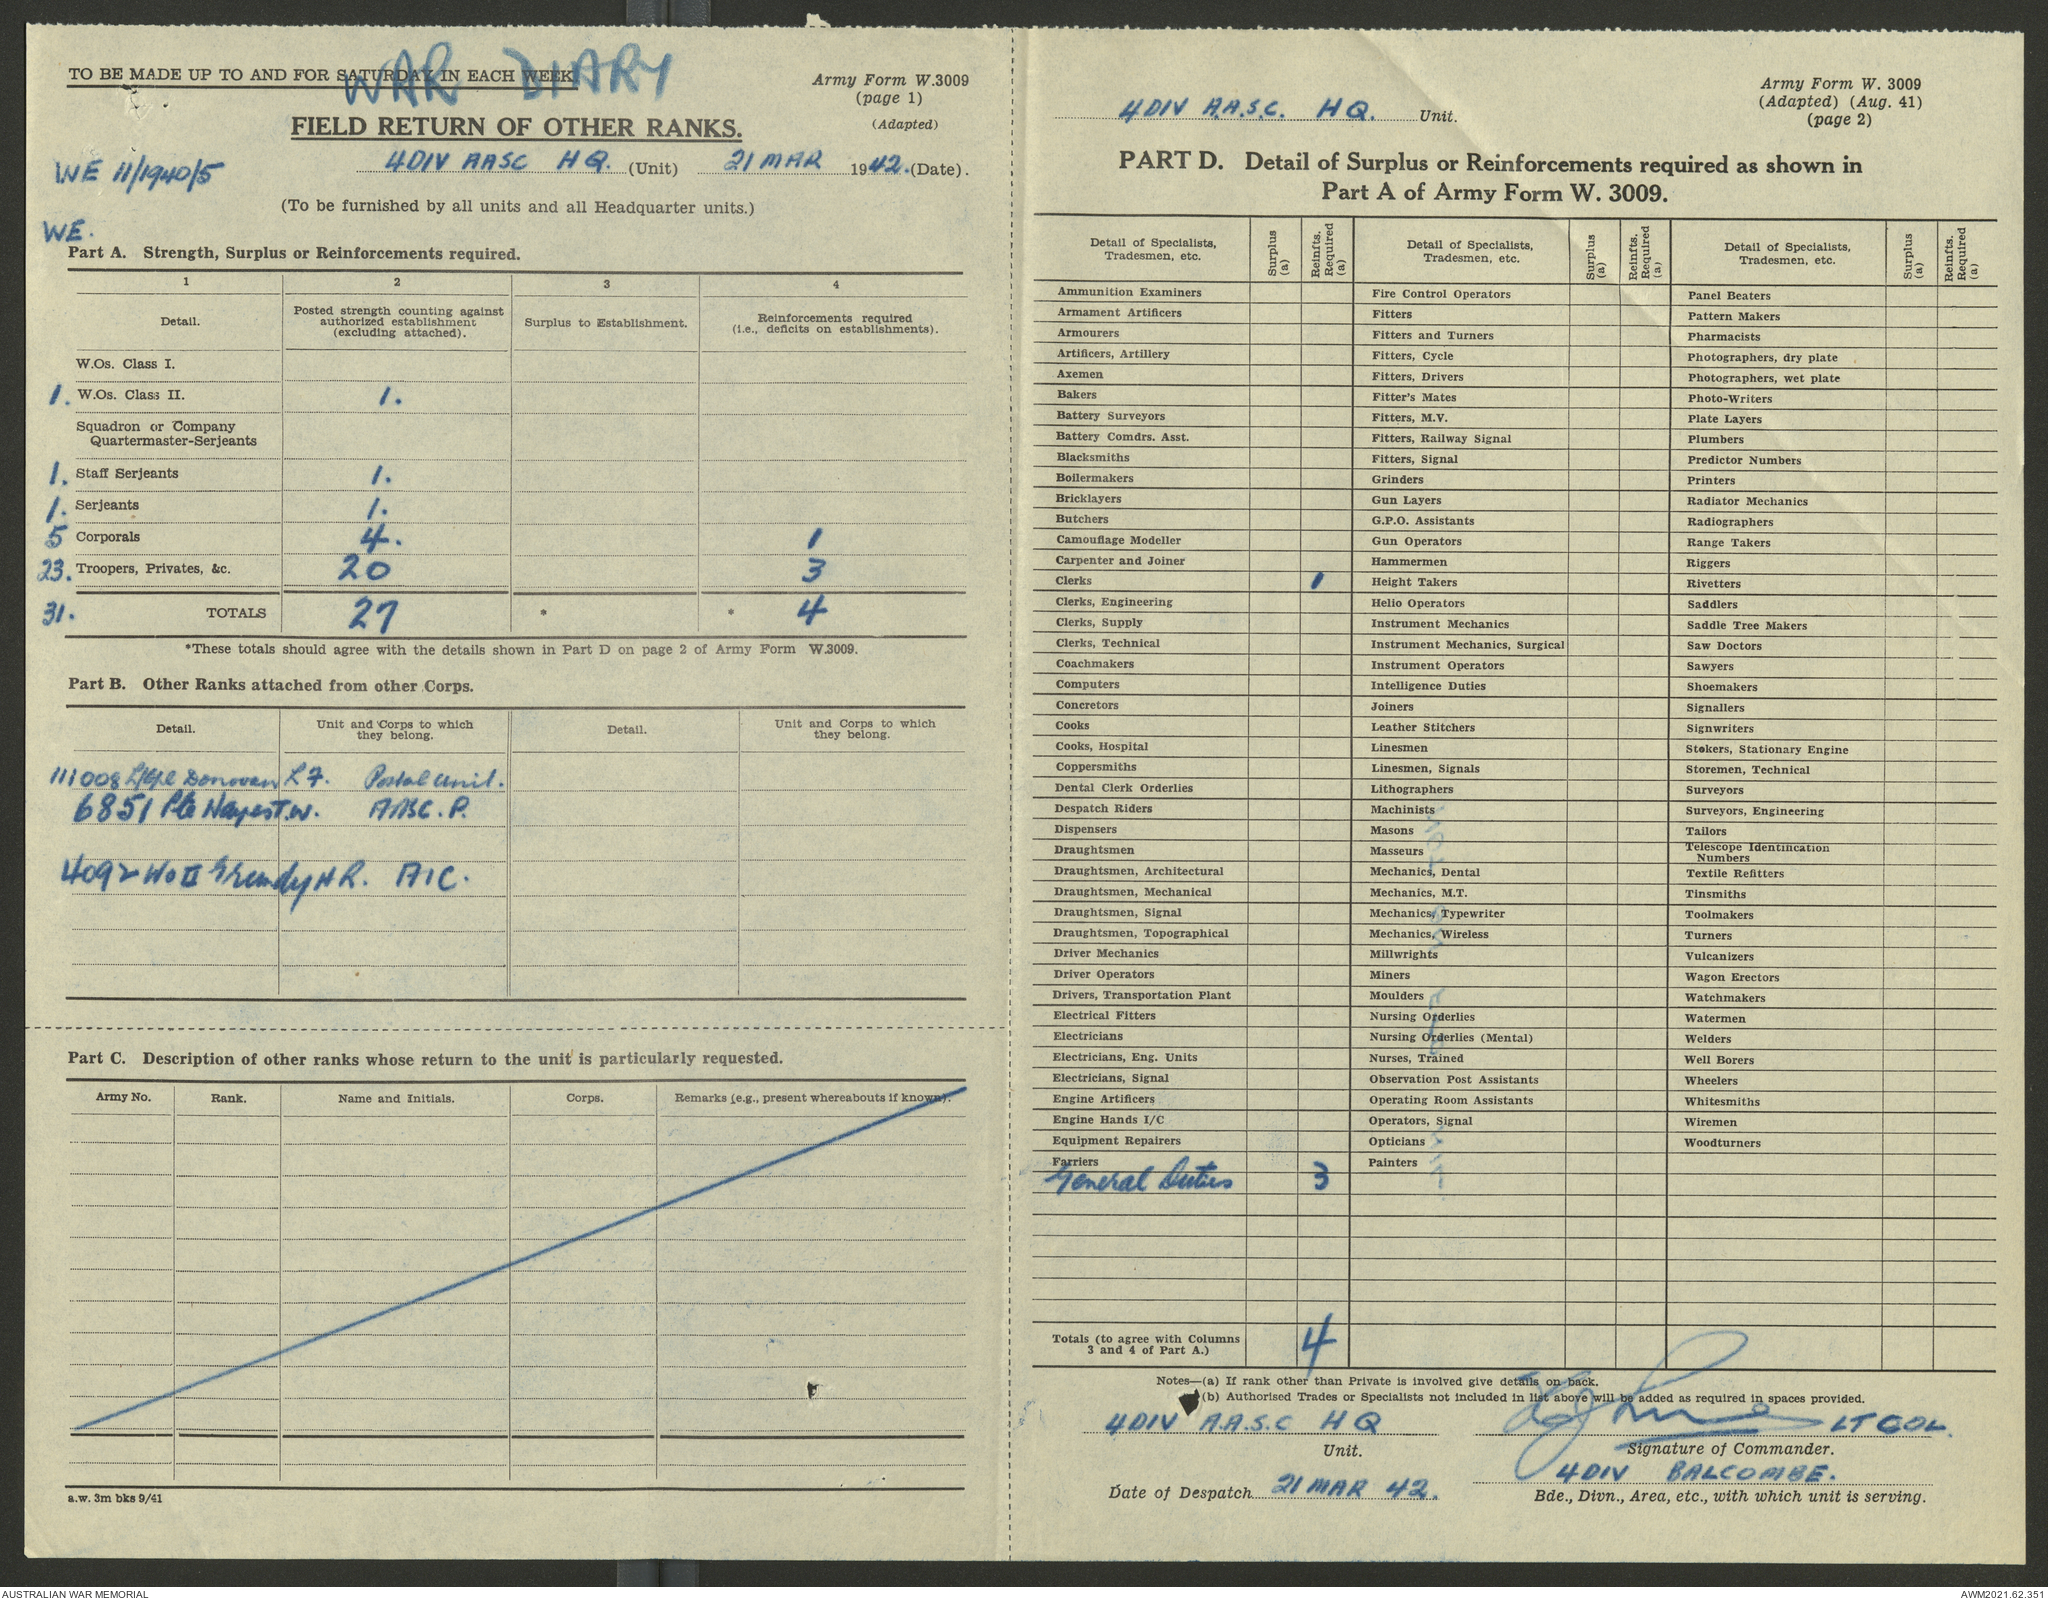 WAR DIARY
TO BE MADE UP TO AND FOR SATURDAY IN EACH WEEK
Army Form W.3009
(page 1)
(Adapted)
FIELD RETURN OF OTHER RANKS.
WE 11/1940/5
4 DIV AASC HQ. (Unit) 21 MAR 1942. (Date).
(To be furnished by all units and all Headquarter units.)
WE.
Part A. Strength, Surplus or Reinforcements required.
1 2 3 4
Detail. Posted strength counting against authorized establishment (excluding attached). Surplus to Establishment. Reinforcements required (i.e., deficits on establishments).
W.Os. Class I.
1. W.Os. Class II. 1.
Squadron or Company
Quartermaster-Serjeants
1. Staff Serjeants 1.
1. Serjeants 1.
5 Corporals 4. 1
23. Troopers, Privates, &c. 20 3
31. TOTALS 27 * * 4
*These totals should agree with the details shown in Part D on page 2 of Army Form W.3009.
Part B. Other Ranks attached from other Corps.
Detail. Unit and Corps to which they belong. Detail. Unit and Corps to which they belong.
111008 L/Cpl Donovan L F. Postal Unit.
6851 Pte Hayes T.W. AASC. P.
4092 WO II Grundy H R. AIC.
Part C. Description of other ranks whose return to the unit is particularly requested.
Army No. Rank. Name and Initials. Corps. Remarks (e.g., present whereabouts if known).
a.w. 3m bks 9/41
4 DIV A.A.S.C. HQ. Unit.
Army Form W. 3009
(Adapted) (Aug. 41)
(page 2)
PART D. Detail of Surplus or Reinforcements required as shown in
Part A of Army Form W. 3009.
Detail of Specialists, Tradesmen, etc. Surplus (a) Reinfts. Required (a) Detail of Specialists, Tradesmen, etc. Surplus (a) Reinfts. Required (a) Detail of Specialists, Tradesmen, etc. Surplus (a) Reinfts. Required (a)
Ammunition Examiners Fire Control Operators Panel Beaters
Armament Artificers Fitters Pattern Makers
Armourers Fitters and Turners Pharmacists
Artificers, Artillery Fitters, Cycle Photographers, dry plate
Axemen Fitters, Drivers Photographers, wet plate
Bakers Fitter's Mates Photo-Writers
Battery Surveyors Fitters, M.V. Plate Layers
Battery Comdrs. Asst. Fitters, Railway Signal Plumbers
Blacksmiths Fitters, Signal Predictor Numbers
Boilermakers Grinders Printers
Bricklayers Gun Layers Radiator Mechanics
Butchers G.P.O. Assistants Radiographers
Camouflage Modeller Gun Operators Range Takers
Carpenter and Joiner Hammermen Riggers
Clerks 1 Height Takers Rivetters
Clerks, Engineering Helio Operators Saddlers
Clerks, Supply Instrument Mechanics Saddle Tree Makers
Clerks, Technical Instrument Mechanics, Surgical Saw Doctors
Coachmakers Instrument Operators Sawyers
Computers Intelligence Duties Shoemakers
Concretors Joiners Signallers
Cooks Leather Stitchers Signwriters
Cooks, Hospital Linesmen Stokers, Stationary Engine
Coppersmiths Linesmen, Signals Storemen, Technical
Dental Clerk Orderlies Lithographers Surveyors
Despatch Riders Machinists Surveyors, Engineering
Dispensers Masons Tailors
Draughtsmen Masseurs Telescope Identification Numbers
Draughtsmen, Architectural Mechanics, Dental Textile Refitters
Draughtsmen, Mechanical Mechanics, M.T. Tinsmiths
Draughtsmen, Signal Mechanics, Typewriter Toolmakers
Draughtsmen, Topographical Mechanics, Wireless Turners
Driver Mechanics Millwrights Vulcanizers
Driver Operators Miners Wagon Erectors
Drivers, Transportation Plant Moulders Watchmakers
Electrical Fitters Nursing Orderlies Watermen
Electricians Nursing Orderlies (Mental) Welders
Electricians, Eng. Units Nurses, Trained Well Borers
Electricians, Signal Observation Post Assistants Wheelers
Engine Artificers Operating Room Assistants Whitesmiths
Engine Hands I/C Operators, Signal Wiremen
Equipment Repairers Opticians Woodturners
Farriers Painters
General Duties 3
Totals (to agree with Columns 3 and 4 of Part A.) 4
Notes—(a) If rank other than Private is involved give details on back.
(b) Authorised Trades or Specialists not included in list above will be added as required in spaces provided.
4 DIV A.A.S.C HQ LT COL.
Unit. Signature of Commander.
4 DIV BALCOMBE.
Date of Despatch 21 MAR 42. Bde., Divn., Area, etc., with which unit is serving.
AUSTRALIAN WAR MEMORIAL AWM2021.62.351